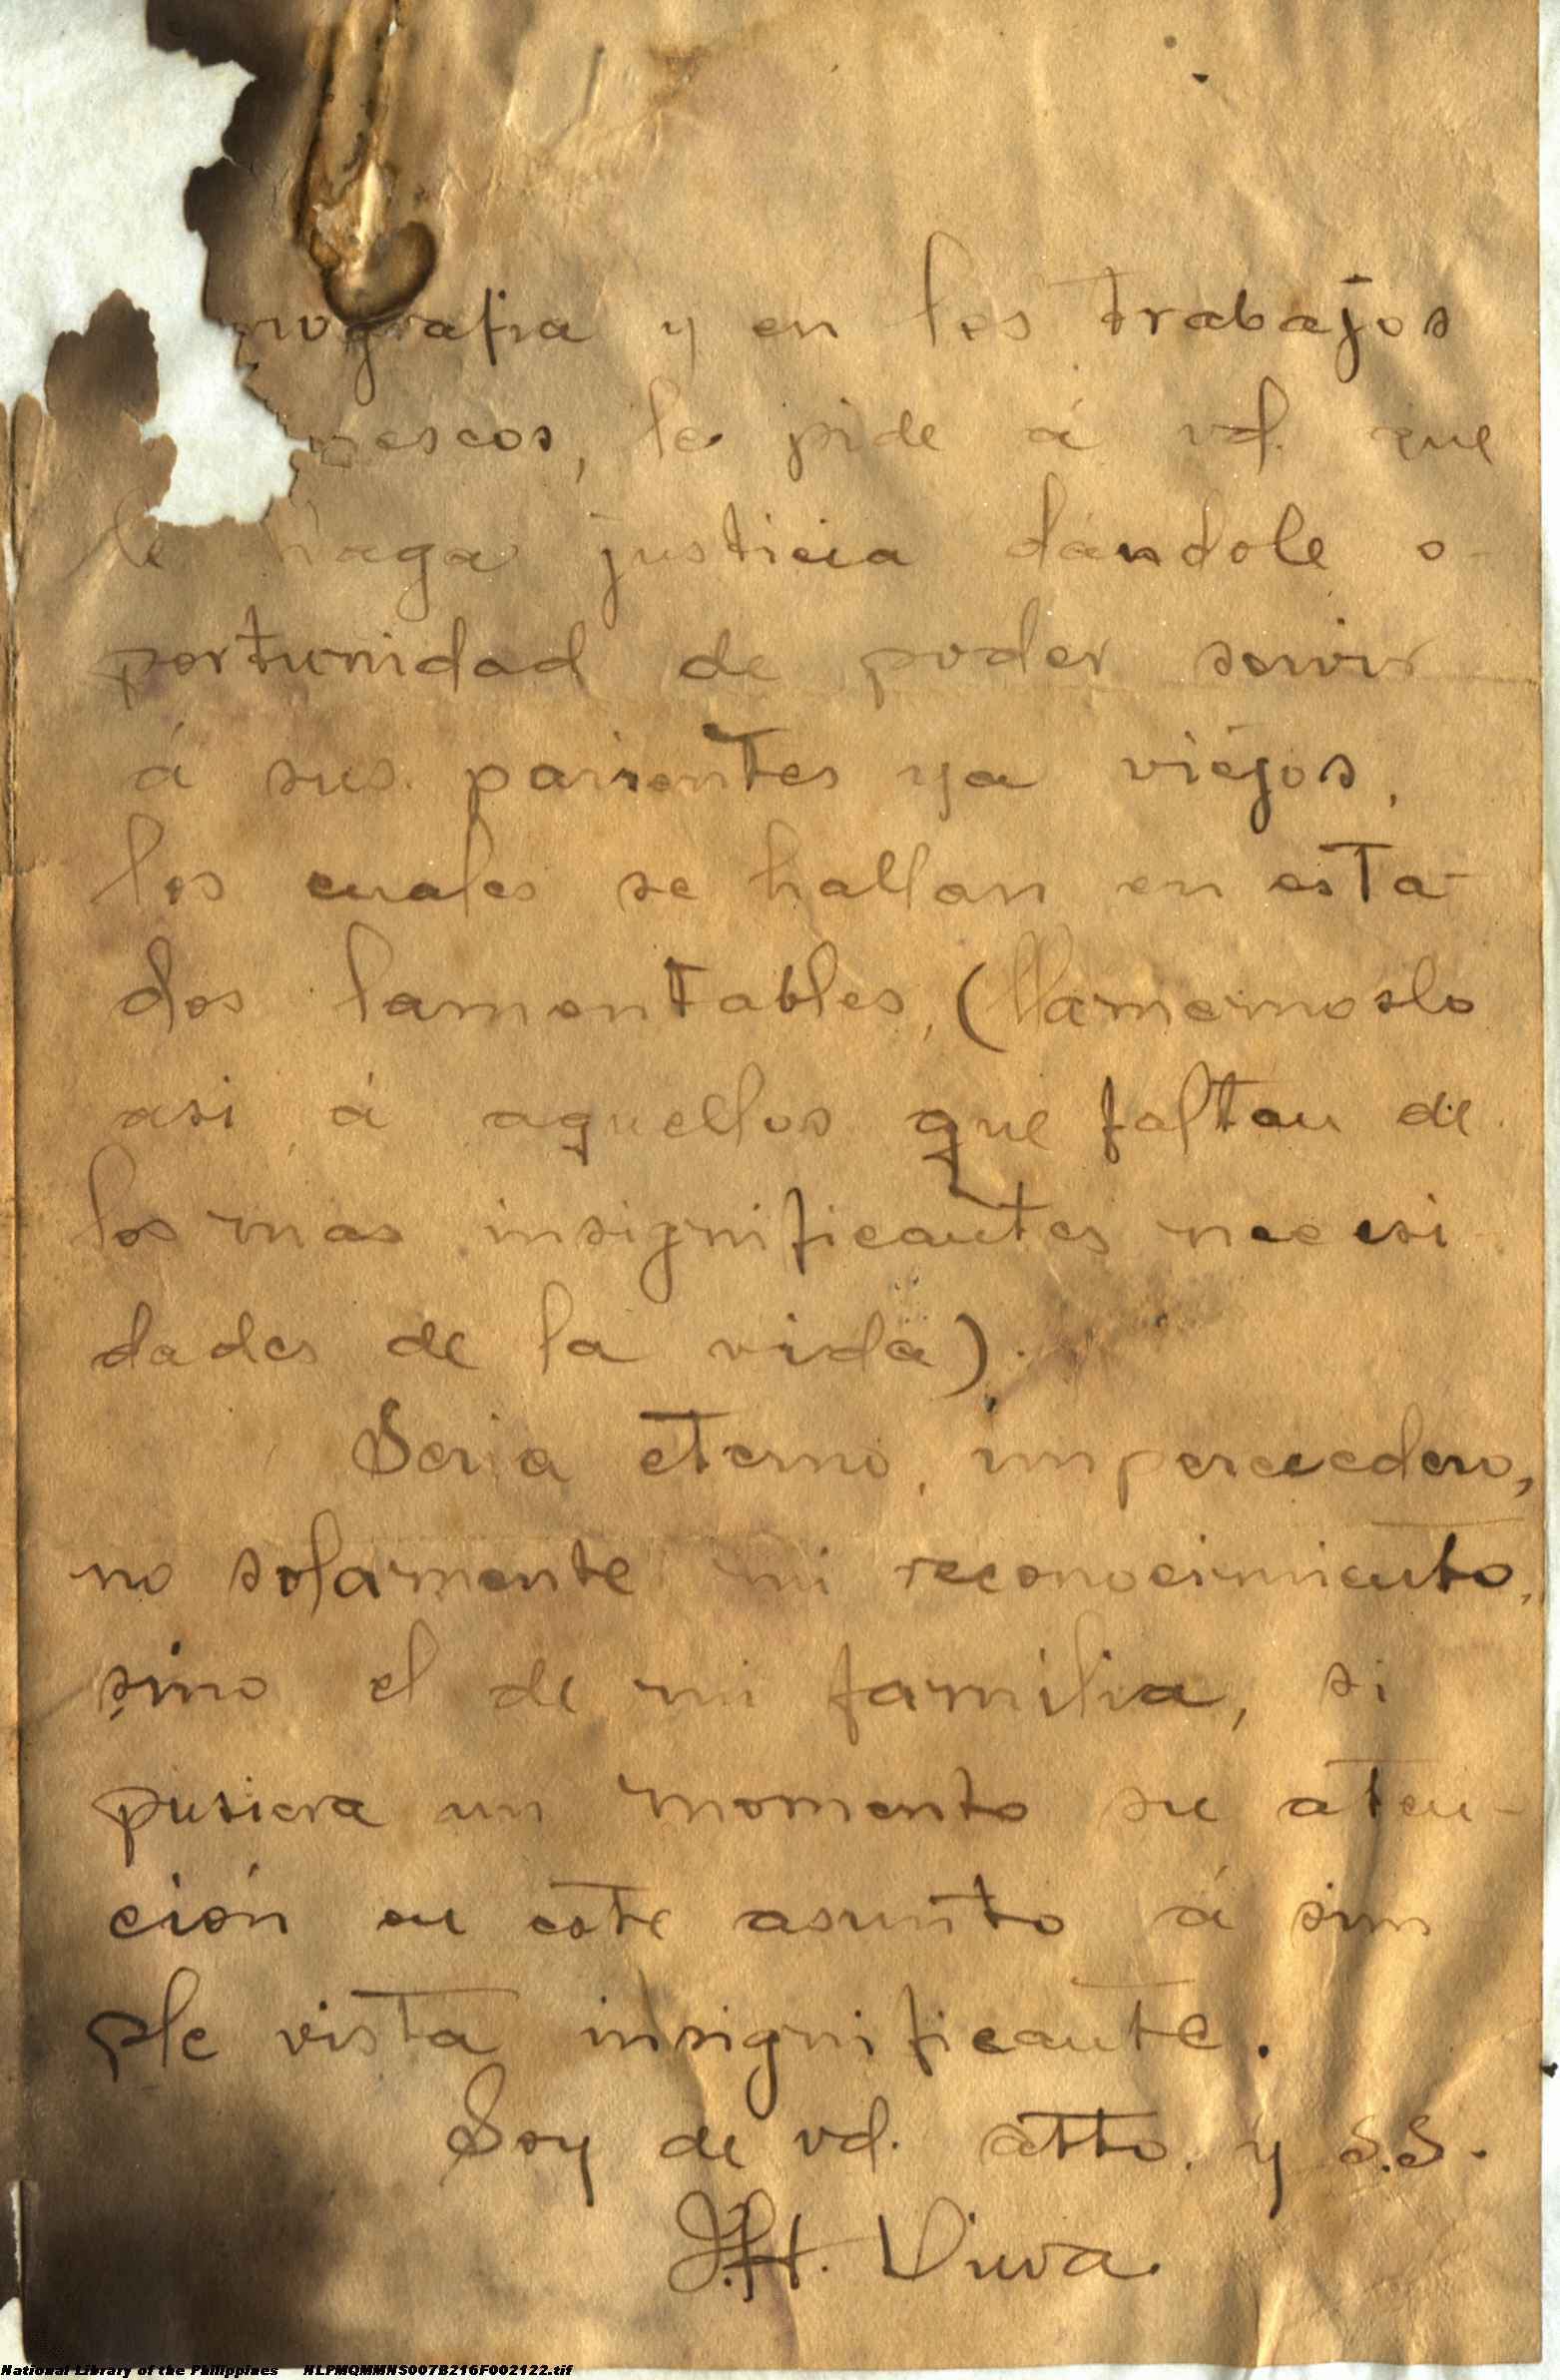 nografia y en los trabajos
nescos, le pide á vd. que
le haga justicia dándole o-
portunidad de poder servir
á sus parientes ya viejos,
los cuales se hallan en esta-
dos lamentables, (llamemoslo
asi á aquellos que faltan de
los mas insignificantes necesi
dades de la vida).
Seria eterno, imperecedero,
no solamente mi reconocimiento,
sino el de mi familia, si
pusiera un momento su aten-
ción en este asunto á sim
ple vista insignificante.
Soy de vd. atto. y S.S.
Viva.
National Library of the Philippines NLPMQMMNS007B216F002122.tif